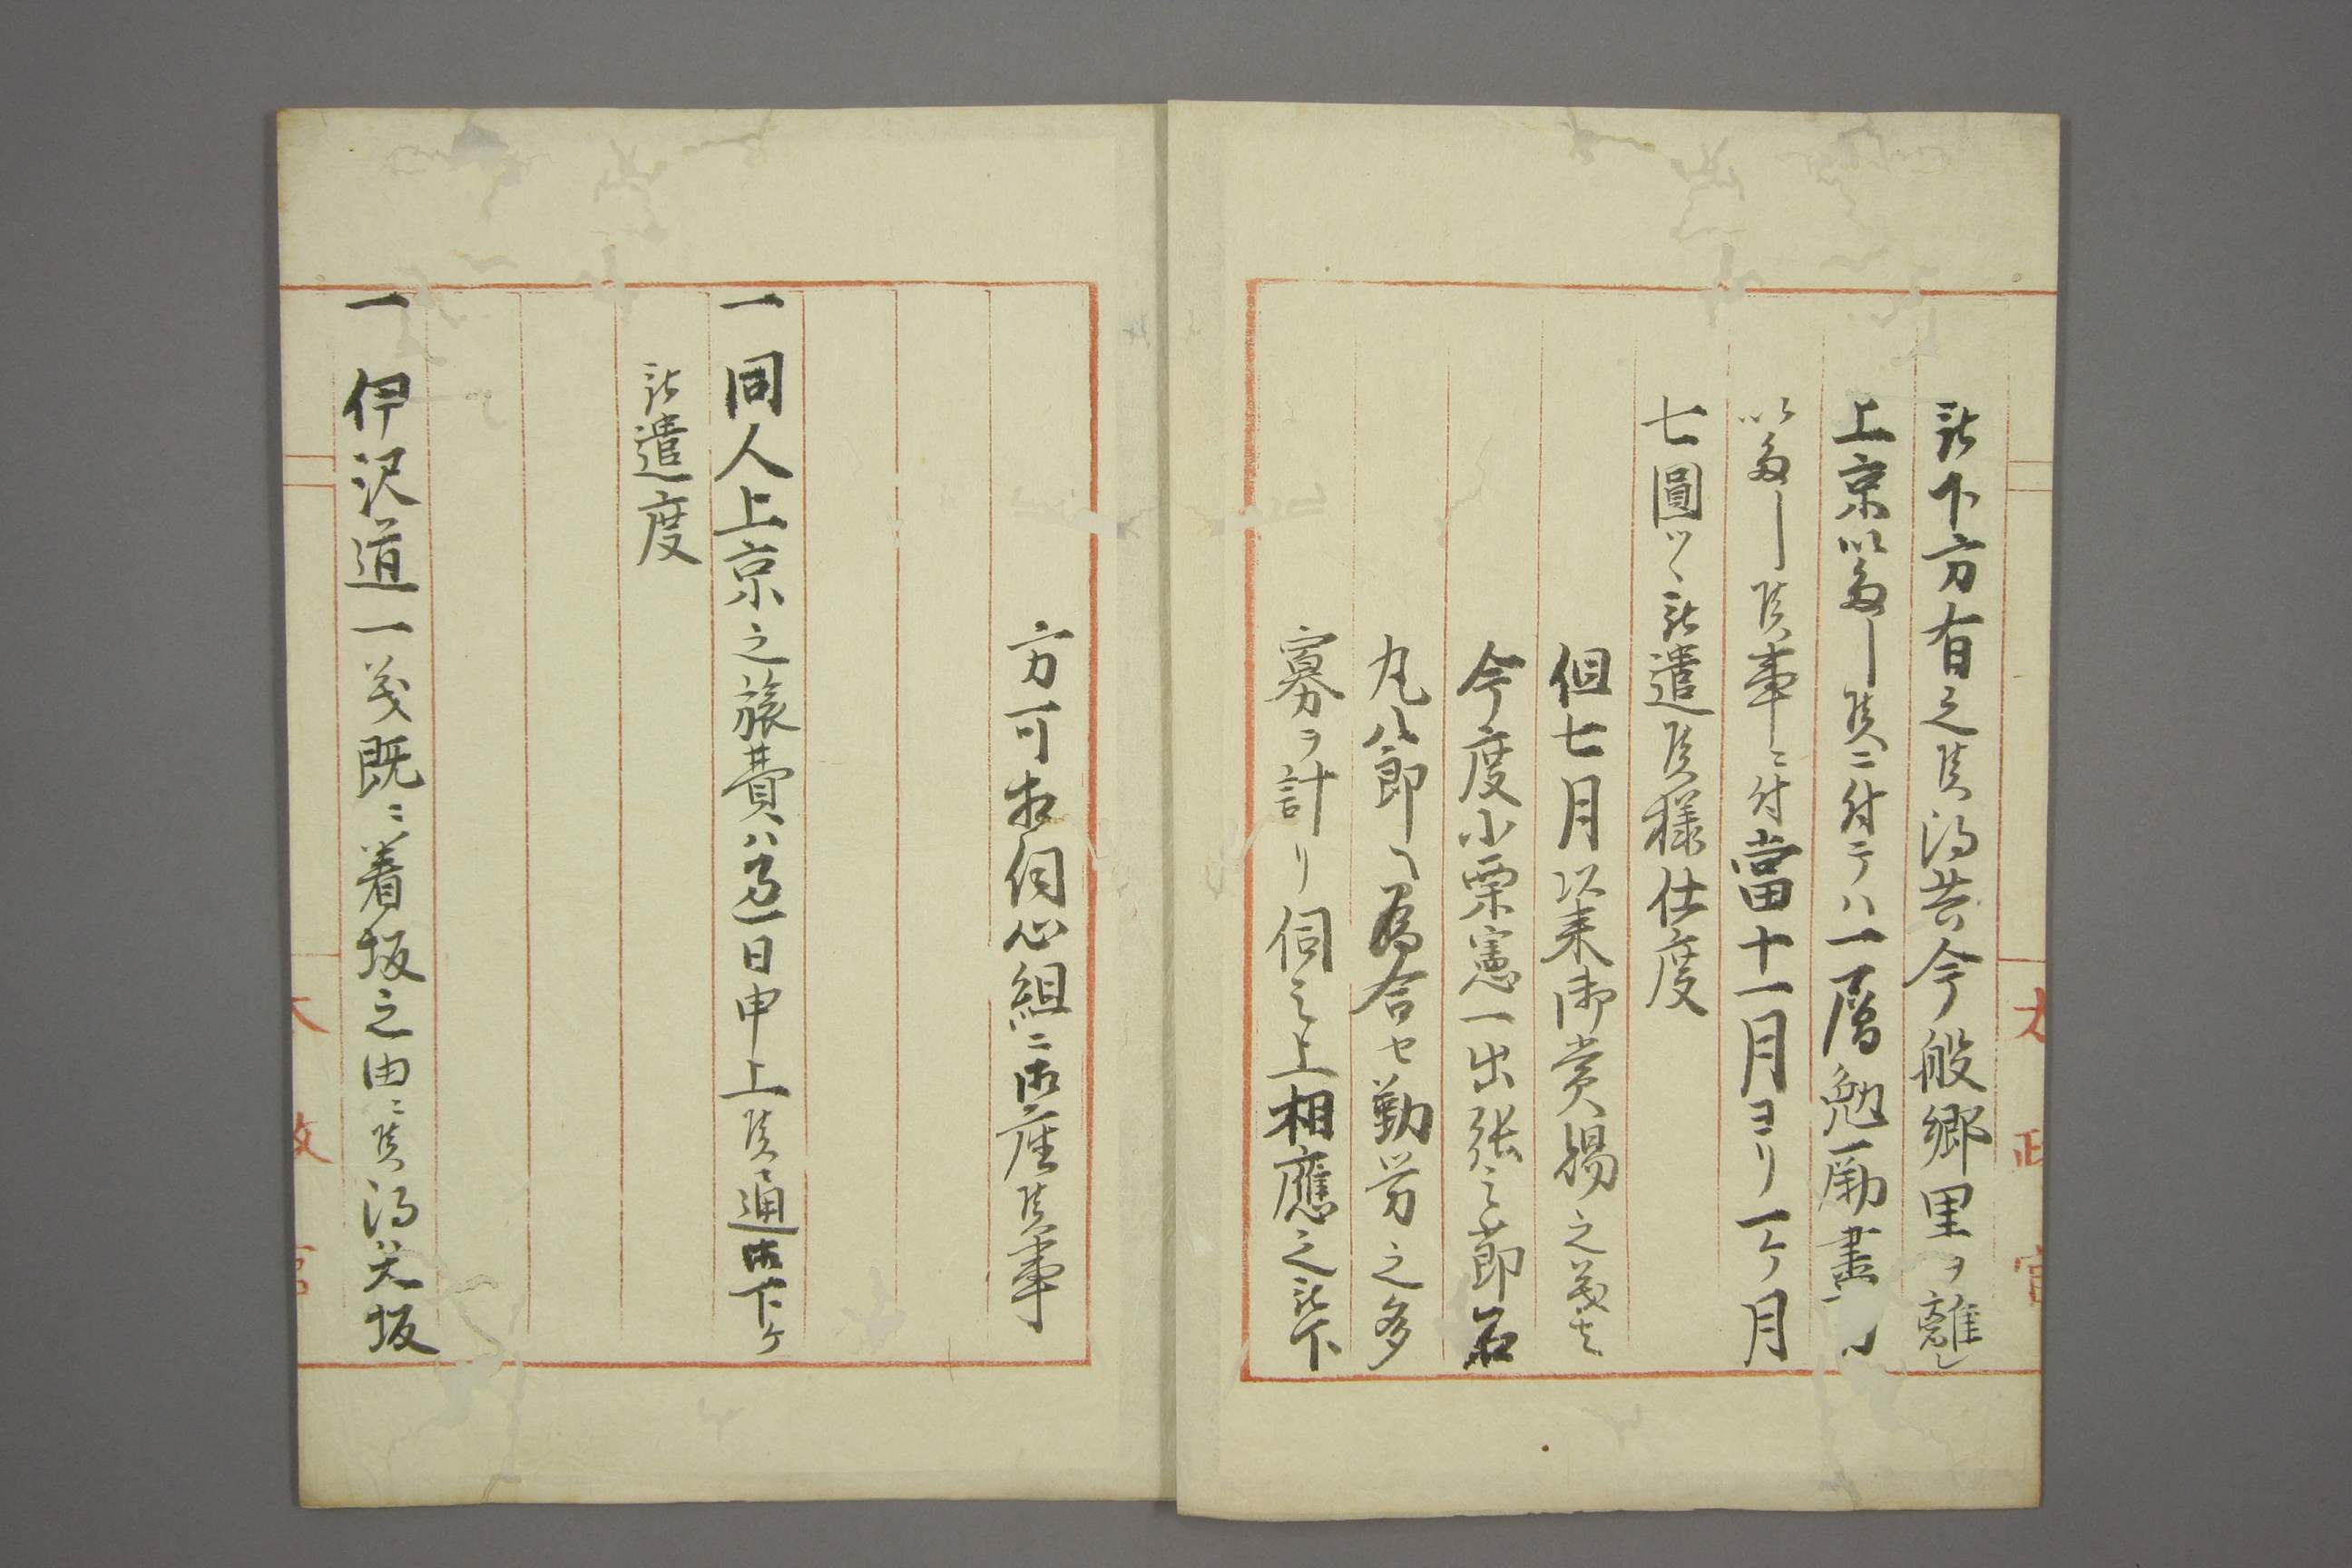 被下方有之候得共今般郷里ヲ離レ
上京以多し候ニ付テハ一層勉励書
以多し候事ニ付當十一月ヨリ一ケ月
七圓ツヽ被遣候様仕度
但七月以来御賞賜之義は
今度小栗憲一出張之節石
丸八郎へ為合セ勤労之多
寡ヲ計リ伺之上相應之被下
方可相伺心組ニ御座候事
一同人上京之旅費ハ過日申上候通御下ケ
被遣度
一伊沢道一義既ニ着坂之由ニ候得共坂
太政官